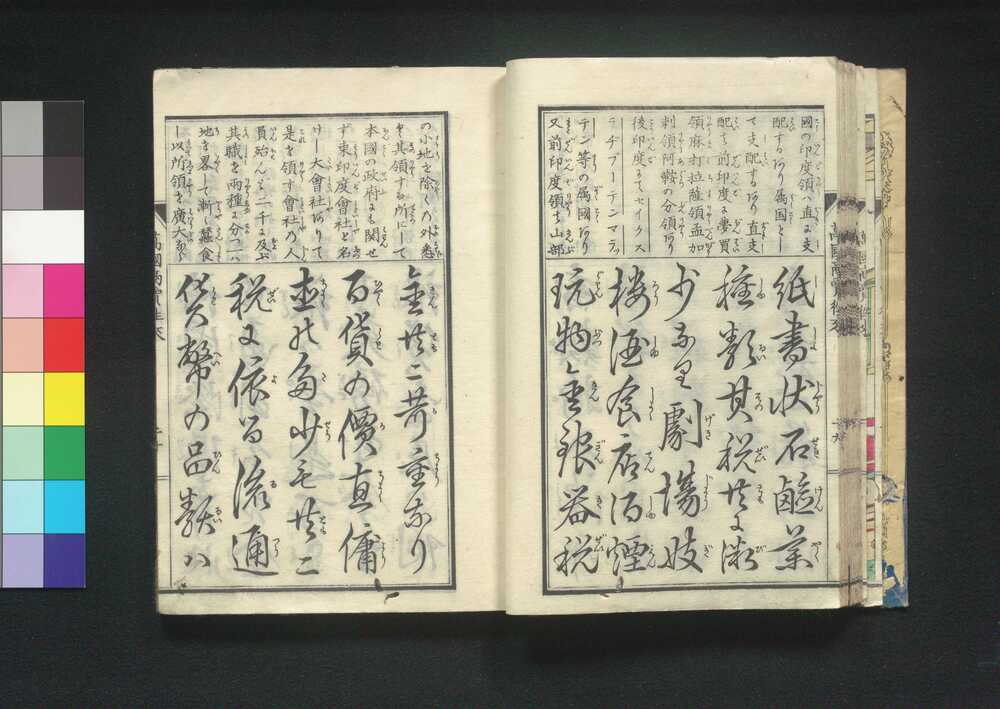 國の印度領ハ直に支
配するあり属国とし
て支配するあり直支
配する前印度に孛買
領麻打拉薩領孟加
剌領阿鞍の分領あり
後印度にてセイクス
ラヂプーテンマラッ
テン等の属國あり
又前印度領すは山部
紙書状石鹼薬
種類其税共に微
少なり劇場妓
楼酒食店酒煙
玩物金銀器税
の小地を除くの外悉
く其領する所にして
本國の政府にも関せ
ず東印度會社と名
けし大會社ありて
是を領す會社の人
員殆んど二千に及ぶ
其職を両種に分つハ
地を畧して漸し蠶食
し以所領を廣大な
金共に苛重なり
百貨の價直傭
直の多少も共に
税に依る流通
貨幣の品類ハ
萬國商賣往来